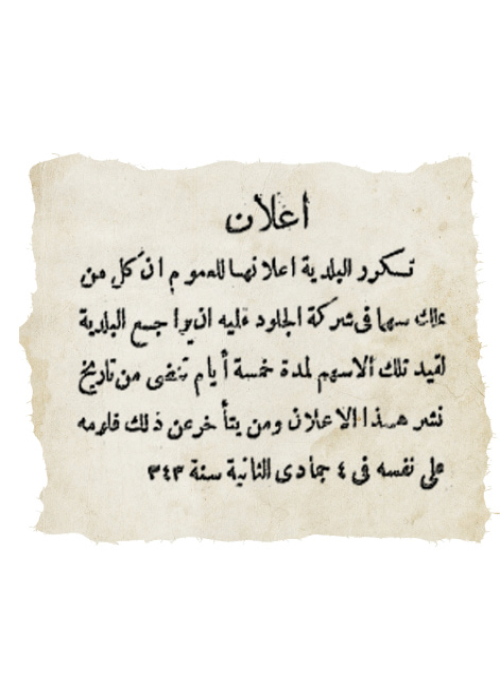 اعلان
تكرر البلدية اعلانها للعموم ان كل من
يملك سهما في شركة الجلود عليه ان يراجع البلدية
لقيد تلك الاسهم لمدة خمسة أيام تمضى من تاريخ
نشر هذا الاعلان ومن يتأخر عن ذلك فلومه
على نفسه فى ٤ جمادى الثانية سنة ٣٤٣